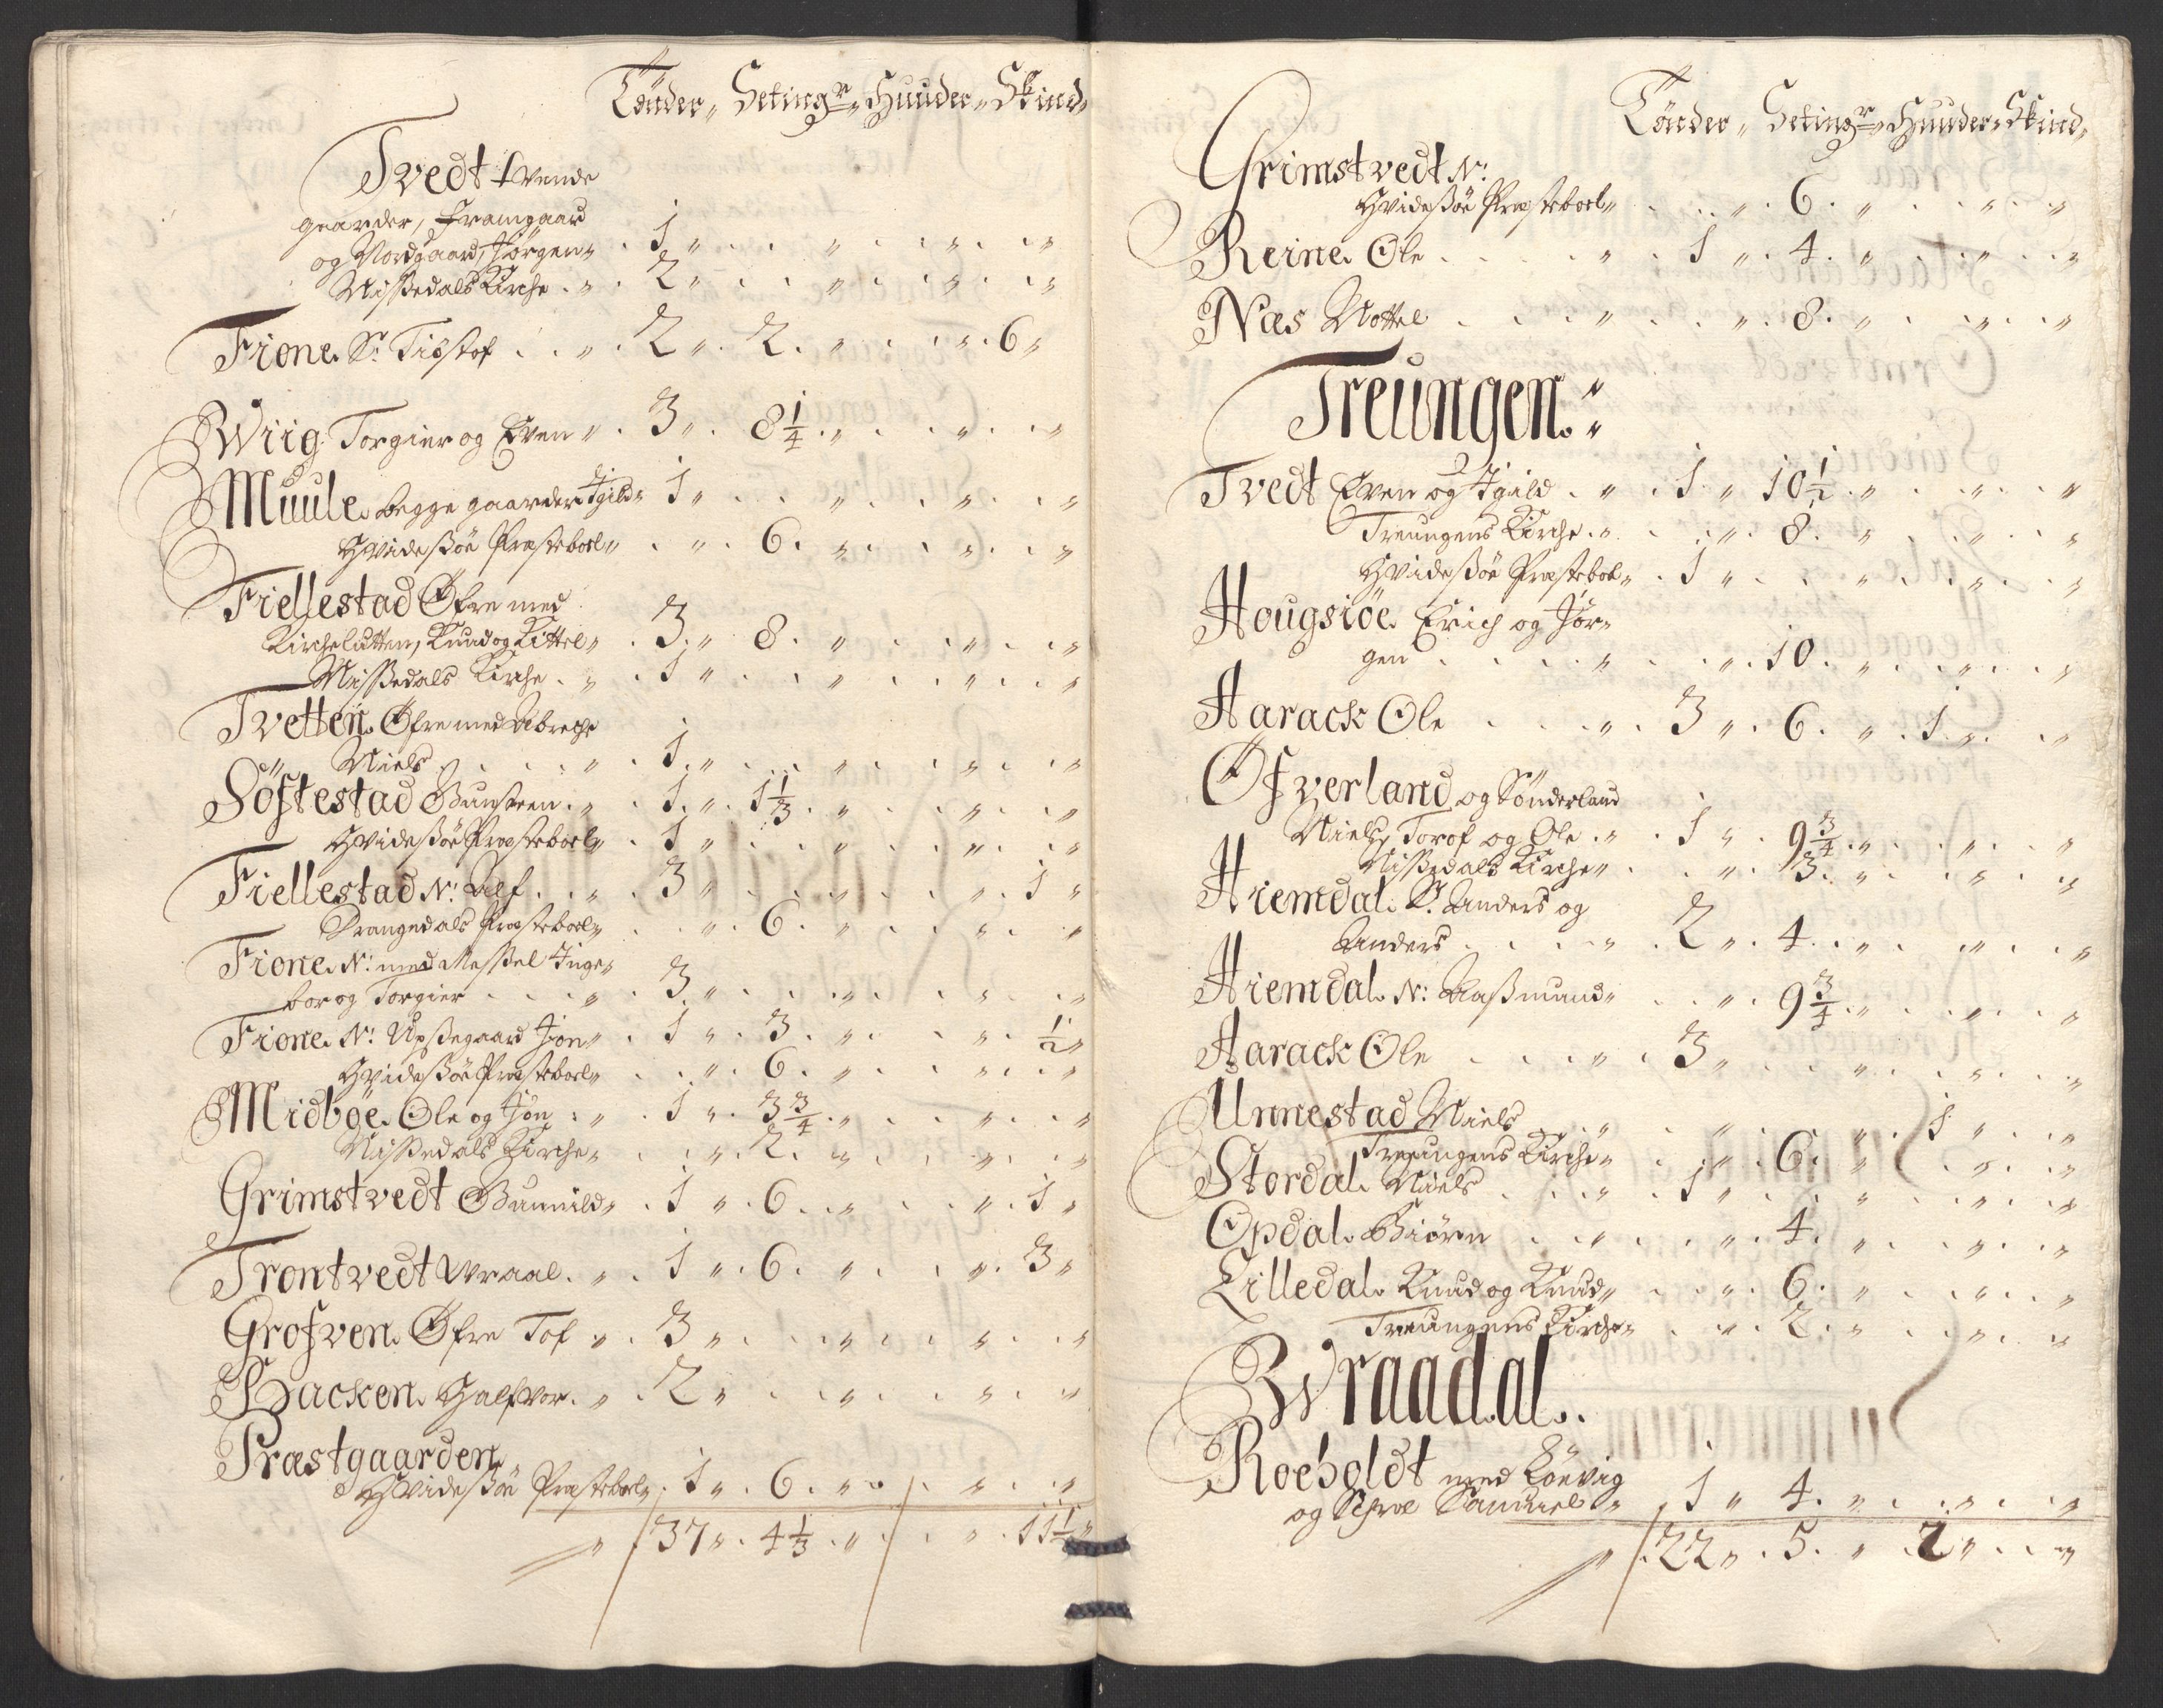 Tönder„ Setingr„ Huuder„ Skind„
Tvedt tvende
gaarder, Framgaard
og Nordgaard, Jörgen„ . 1 „ . . „ . . „ . . „
Nissedals Kirche . „ . 2 „ . . „ . . „ . . „
Fione. S: Tilstof . . „ . 2 „ . 2 . „ . . „ . 6 „
Wiig Torgier og Even „ . 3 „ . 8 1/4 . „ . . „ . . „
Muule. begge gaarder Igild„ 1 „ . . „ . . „ . . „
Hvidesøe Præsteboel„ . . „ . 6 . „ . . „ . . „
Fiellestad Øfre med
Kirchelutten, Knud og Kittel„ . 3 . „ 8 . „ . . „ . . „
Nissedals Kirche . „ . 1 „ . . „ . . „ . . „
Tvetten. Øfre med Abrege
Niels . . . . „ . 1 . „ . . „ . . „ . . „
Söftestad Gunsteen . „ . 1 . „ . 1 1/3 . „ . . „ . . „
Hvidesøe Præsteboel„ . 1 „ . . „ . . „ . . „
Fiellestad N: Alf . . „ . 3 „ . . „ . . „ . 1 „
Drangedals Præsteboel„ . . „ . 6 . „ . . „ . . „
Fione. N: med Messel Inge„
bor og Torgier . . . „ . 3 „ . . „ . . „ . . „
Fione. N: Upsegaard Jon„ . 1 „ . 3 . „ . . „ . 1/2 „
Hvidesøe Præsteboel„ . . „ . 6 . „ . . „ . . „
Midböe. Ole og Jön . „ . 1 „ . 3 3/4 . „ . . „ . . „
Nissedals Kirche„ . . „ . 2 . „ . . „ . . „
Grimstvedt Gunnild„ . 1 „ . 6 . „ . . „ . 1 „
Trontvedt Wraal . „ . 1 „ . 6 . „ . . „ . 3 „
Grofven. Øfre Tof „ . 3 „ . . „ . . „ . . „
Backen. Halfvor . „ . 2 „ . . „ . . „ . . „
Præstgaarden.
Hvidesøe Præsteboel„ . 1 „ . 6 . „ . . „ . . „
„ . 37 „ . 4 1/3 . „ . . „ . 11 1/2 „
Tönder„ Setingr„ Huuder„ Skind„
Grimstvedt N:
Hvidesøe Præsteboel„ . . „ . 6 . „ . . „ . . „
Reine. Ole . . . „ . 1 „ . 4 . „ . . „ . . „
Næs Nottel . . . „ . . „ . 8 . „ . . „ . . „
Treungen.
Tvedt Even og Igild . „ . 1 . „ 10 1/2 . „ . . „ . . „
Treungens Kirche . „ . . „ . 8 . „ . . „ . . „
Hvidesøe Præstebol„ . 1 „ . . „ . . „ . . „
Hougsiöe. Erich og Jör„
gen . . . . „ . . „ . 10 . „ . . „ . . „
Aarack Ole . . . „ . 3 „ . 6 . „ . 1 . „ . . „
Øfverland og Sönderland
Niels, Torof og Ole . „ . 1 „ . 9 3/4 . „ . . „ . . „
Nissedals Kirche „ . . „ . 3 . „ . . „ . . „
Hiemdal. S: Anders og
Anders . . . „ . 2 „ . 4 . „ . . „ . . „
Hiemdal. N: Aasmund„ . . „ . 9 3/4 . „ . . „ . . „
Aarack Ole . . . „ . 3 „ . . „ . . „ . . „
Unnestad Niels . . „ . . „ . . „ . 1 „ . . „
Treungens Kirche„ . . „ . 6 . „ . . „ . . „
Stordal. Niels . . . „ . 1 „ . . „ . . „ . . „
Opdal. Biörn . . . „ . . „ . 4 . „ . . „ . . „
Lilledal. Knud og Knud„ . . „ . 6 . „ . . „ . . „
Treungens Kirche„ . . „ . 2 . „ . . „ . . „
Wraadal.
Roeholdt med Löevig
og Schroe Samuel „ . 1 „ 4 . „ . . „ . . „
„ . 22 „ . 5 . „ . 2 „ . . „